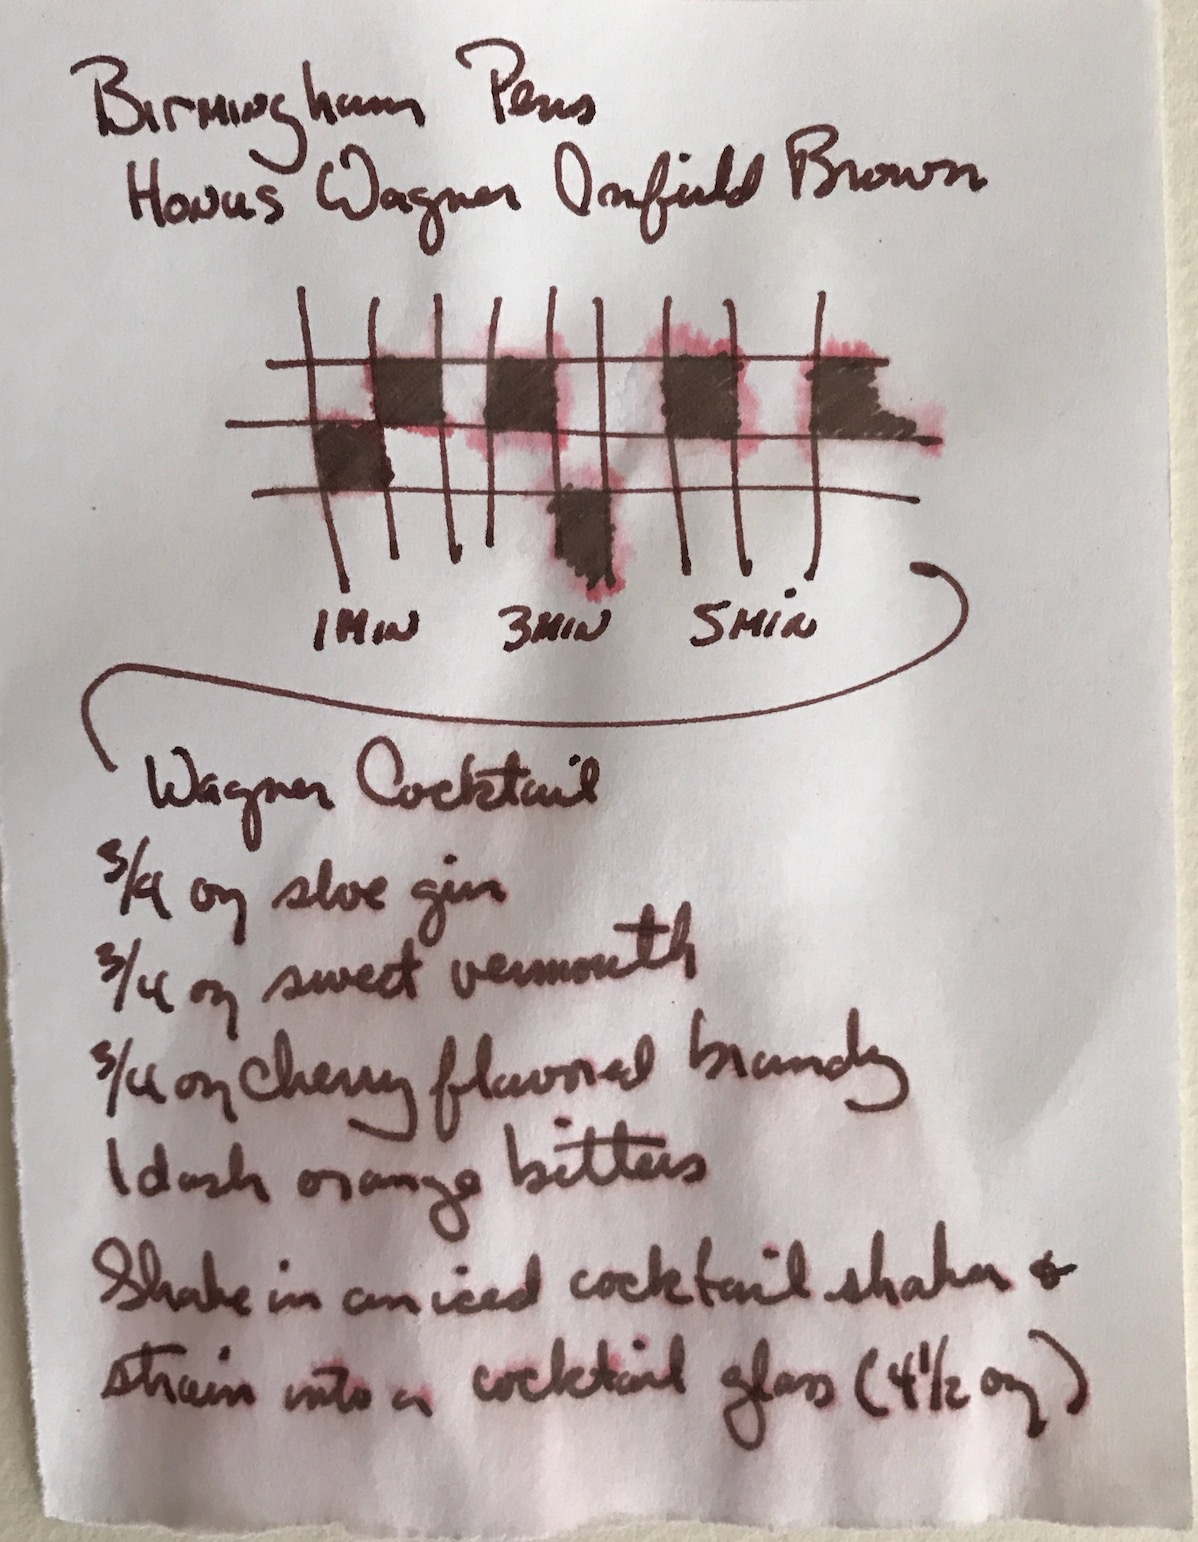 Birmingham Pens
Honus Wagner Infield Brown
1 Min 3 Min 5 Min
Wagner Cocktail
3/4 oz sloe gin
3/4 oz sweet vermouth
3/4 oz cherry flavored brandy
1 dash orange bitters
Shake in an iced cocktail shaker &
strain into a cocktail glass (4 1/2 oz)